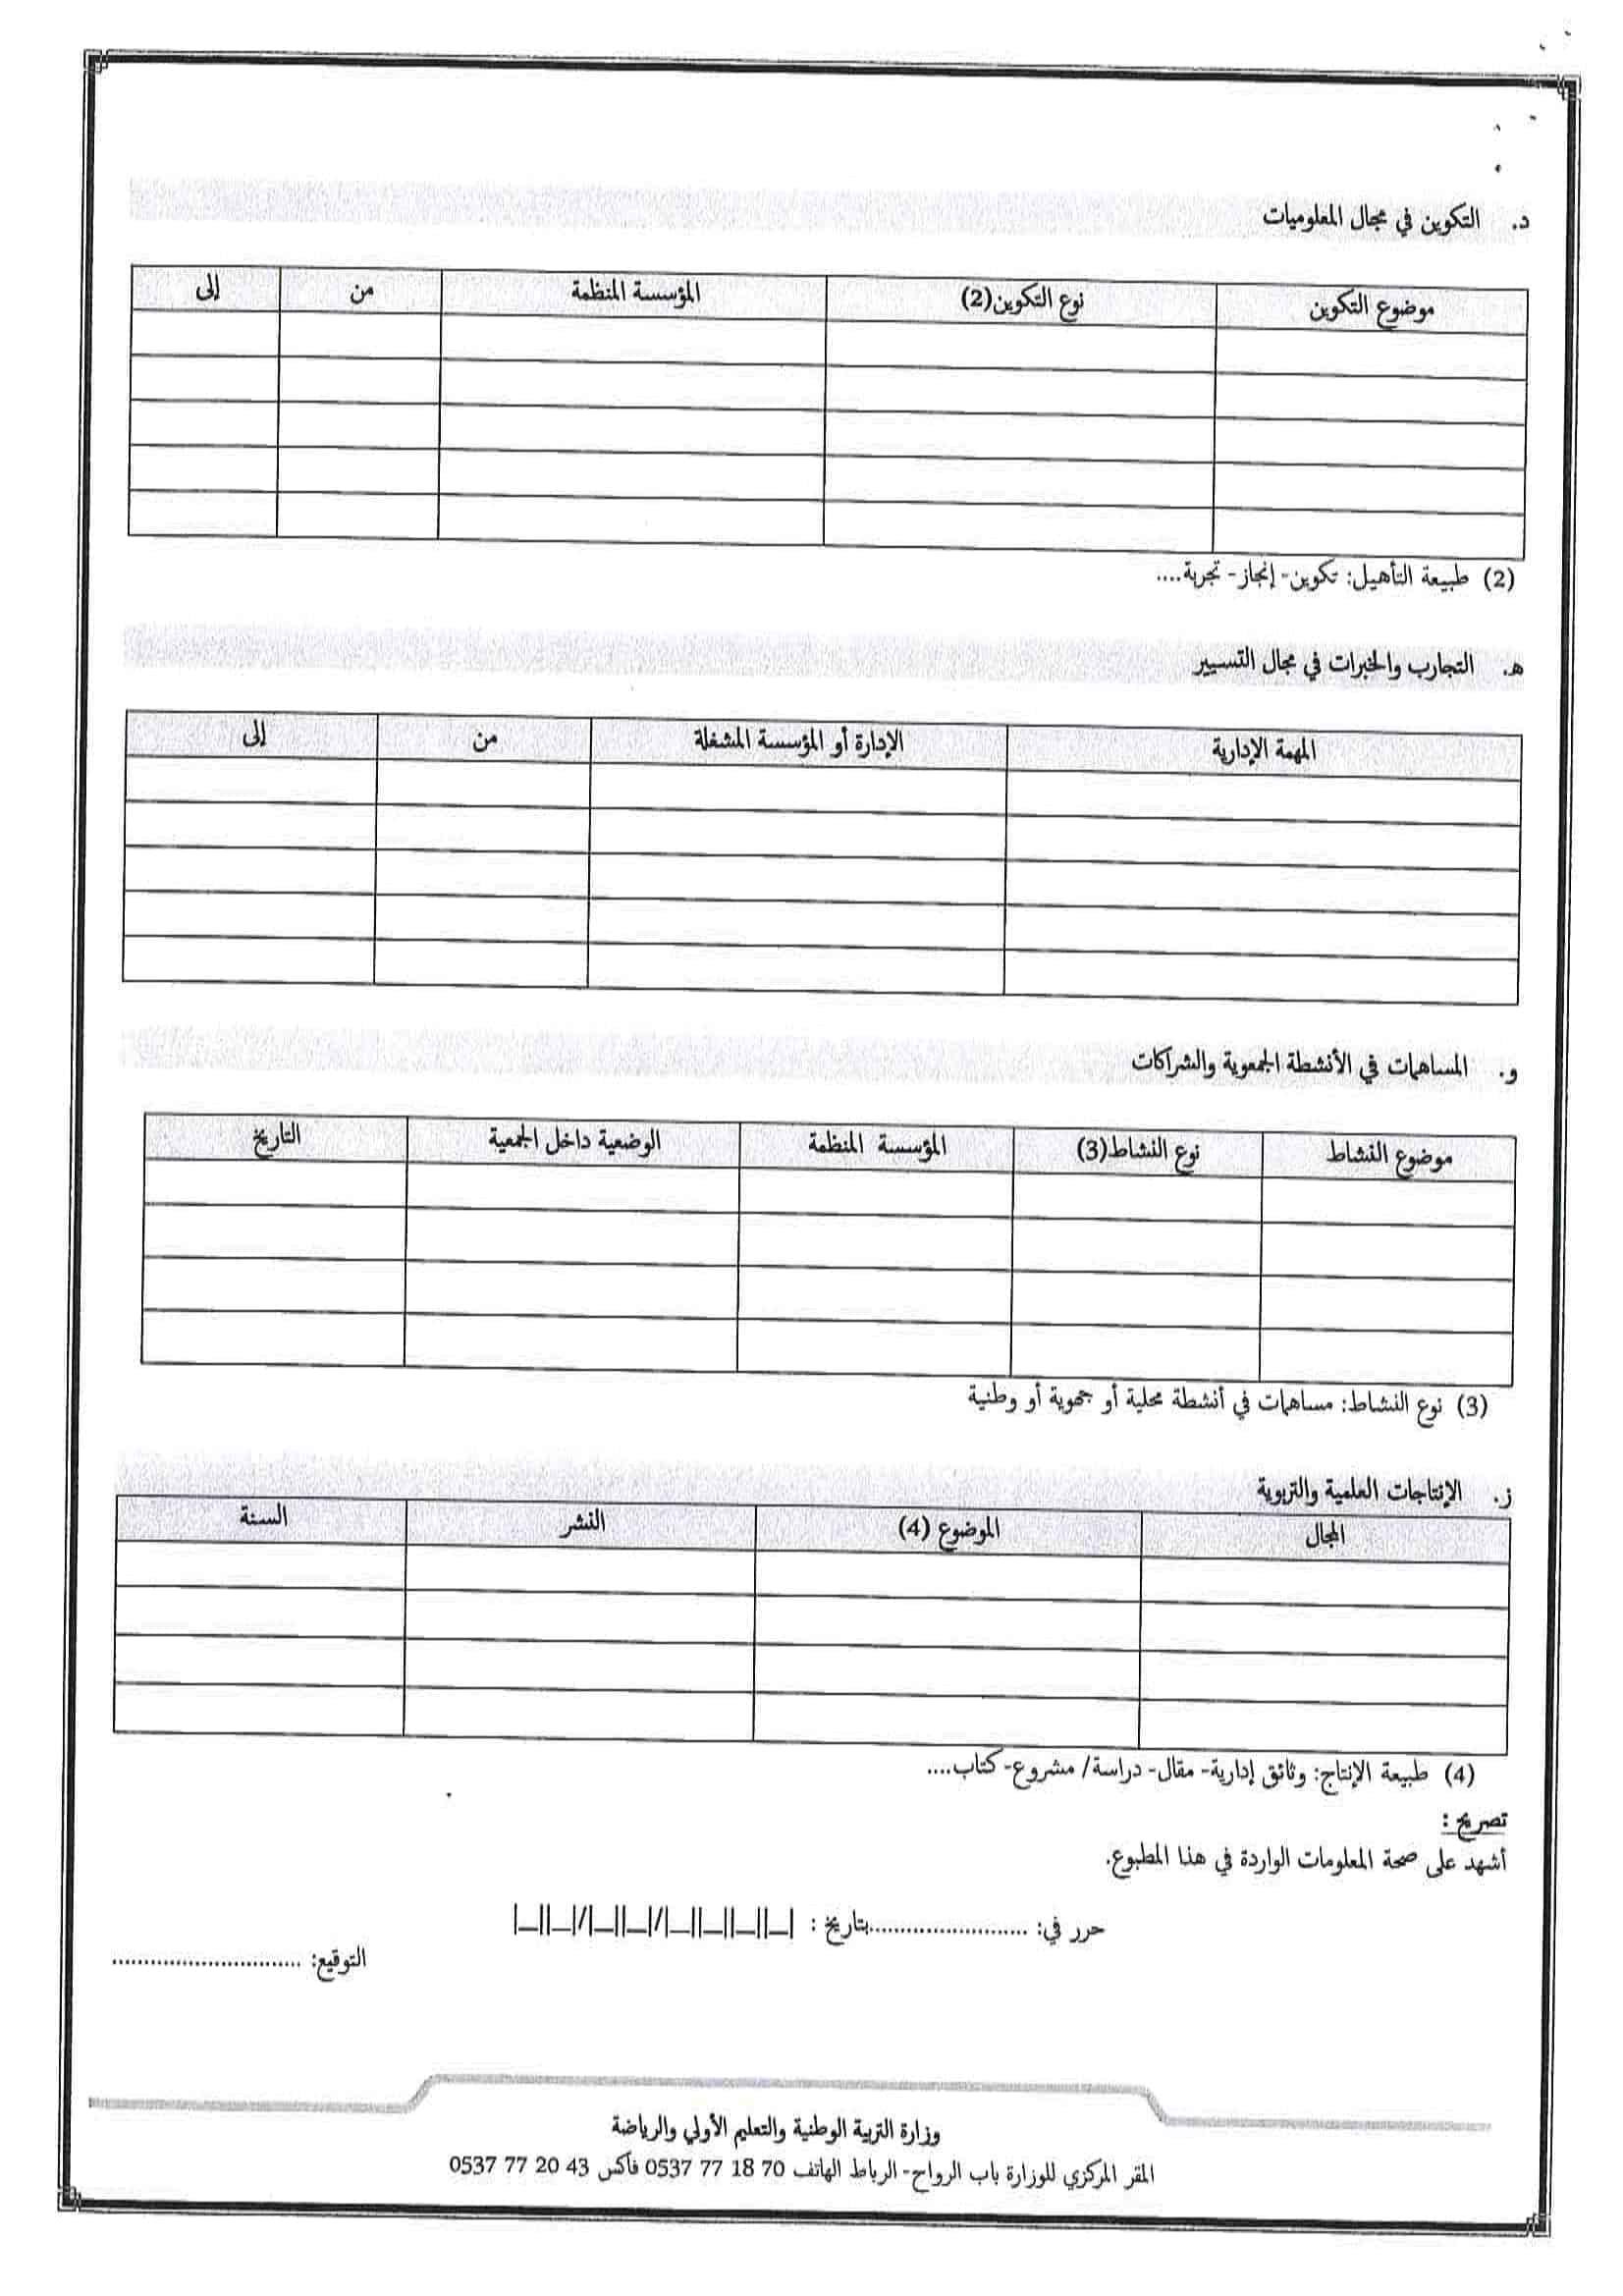 د. التكوين في مجال المعلوميات
موضوع التكوين نوع التكوين(2) المؤسسة المنظمة من إلى
(2) طبيعة التأهيل: تكوين- إنجاز- تجربة....
ه. التجارب والخبرات في مجال التسيير
المهمة الإدارية الإدارة أو المؤسسة المشغلة من إلى
و. المساهمات في الأنشطة الجمعوية والشراكات
موضوع النشاط نوع النشاط(3) المؤسسة المنظمة الوضعية داخل الجمعية التاريخ
(3) نوع النشاط: مساهمات في أنشطة محلية أو جهوية أو وطنية
ز. الإنتاجات العلمية والتربوية
المجال الموضوع (4) النشر السنة
(4) طبيعة الإنتاج: وثائق إدارية- مقال- دراسة/ مشروع- كتاب....
تصريح :
أشهد على صحة المعلومات الواردة في هذا المطبوع.
حرر في: .........................بتاريخ : |__||__|/|__||__|/|__||__||__||__|
التوقيع: ..............................
وزارة التربية الوطنية والتعليم الأولي والرياضة
المقر المركزي للوزارة باب الرواح- الرباط الهاتف 70 18 77 0537 فاكس 43 20 77 0537